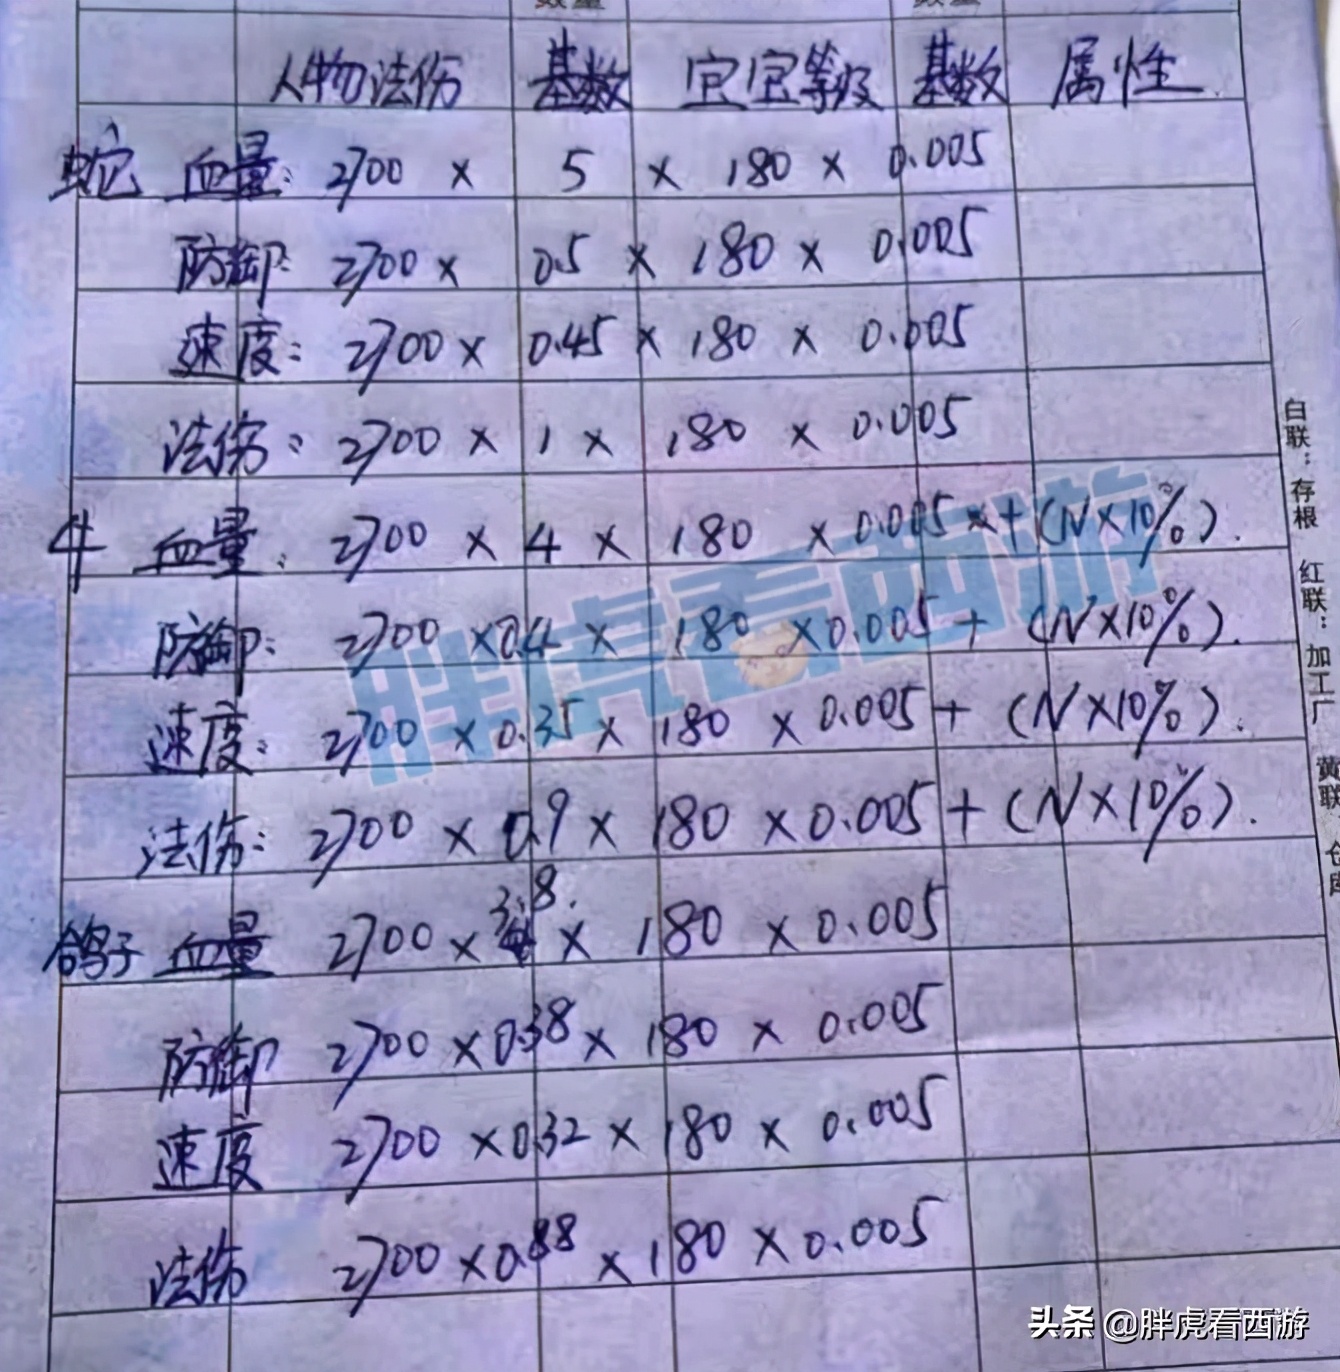 人物法伤 基数 宝宝等级 基数 属性
蛇 血量: 2700 × 5 × 180 × 0.005
防御: 2700 × 0.5 × 180 × 0.005
速度: 2700 × 0.45 × 180 × 0.005
法伤: 2700 × 1 × 180 × 0.005
牛 血量: 2700 × 4 × 180 × 0.005 × + (N×10%).
防御: 2700 × 0.4 × 180 × 0.005 + (N×10%).
速度: 2700 × 0.35 × 180 × 0.005 + (N×10%).
法伤: 2700 × 0.9 × 180 × 0.005 + (N×10%).
鸽子 血量 2700 × 3.8 × 180 × 0.005
防御 2700 × 0.38 × 180 × 0.005
速度 2700 × 0.32 × 180 × 0.005
法伤 2700 × 0.88 × 180 × 0.005
白联:存根 红联:加工厂 黄联 仓库
胖虎看西游
头条 @胖虎看西游